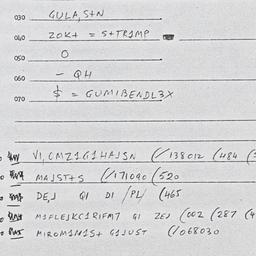 030 GULA, S+N
040 20K+ = S+TR1MP
050 O
060 - QH
070 $ = GUMIBENDL3X
VI, CMZ1G1HAJSN (/138012 (484
MAJST+S (/171090 (520
DEJ QI DI /PL/ (465
M1FLEJKC1RIFM7 GI ZEJ (002 (287
MIROM1N1S+ G1JUST (/068030